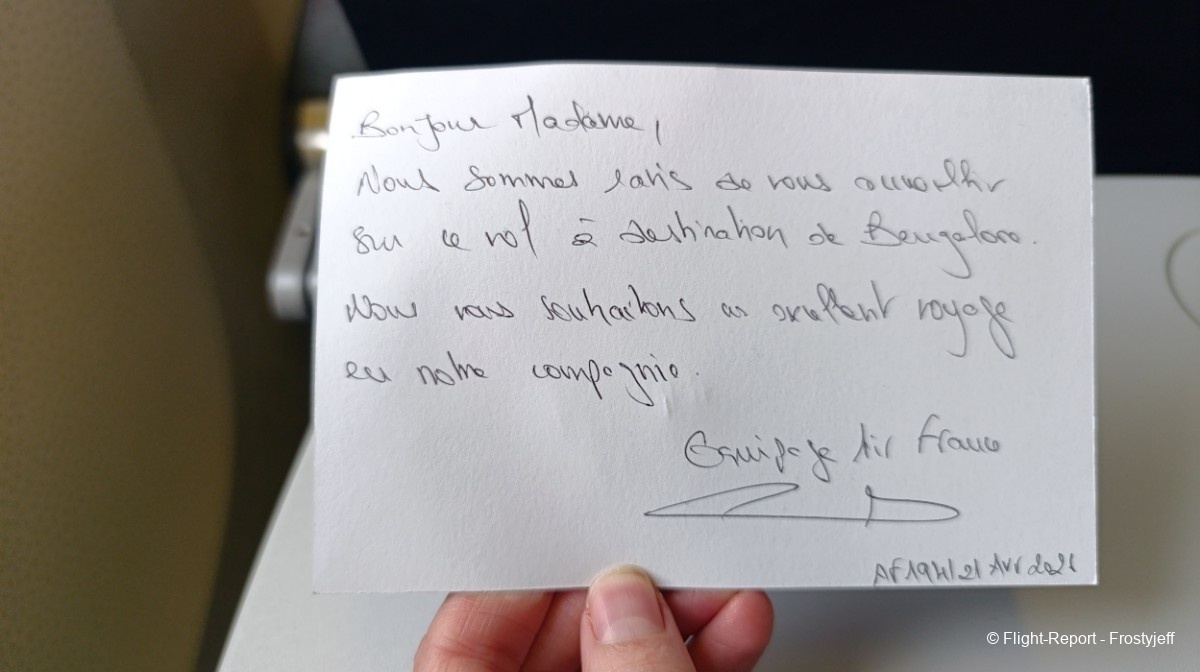 Bonjour Madame,
Nous sommes ravis de vous accueillir
sur ce vol à destination de Bengalore.
Nous vous souhaitons un excellent voyage
en notre compagnie.
Equipage Air France
AF194/21 Avr
© Flight-Report - Frostyjeff